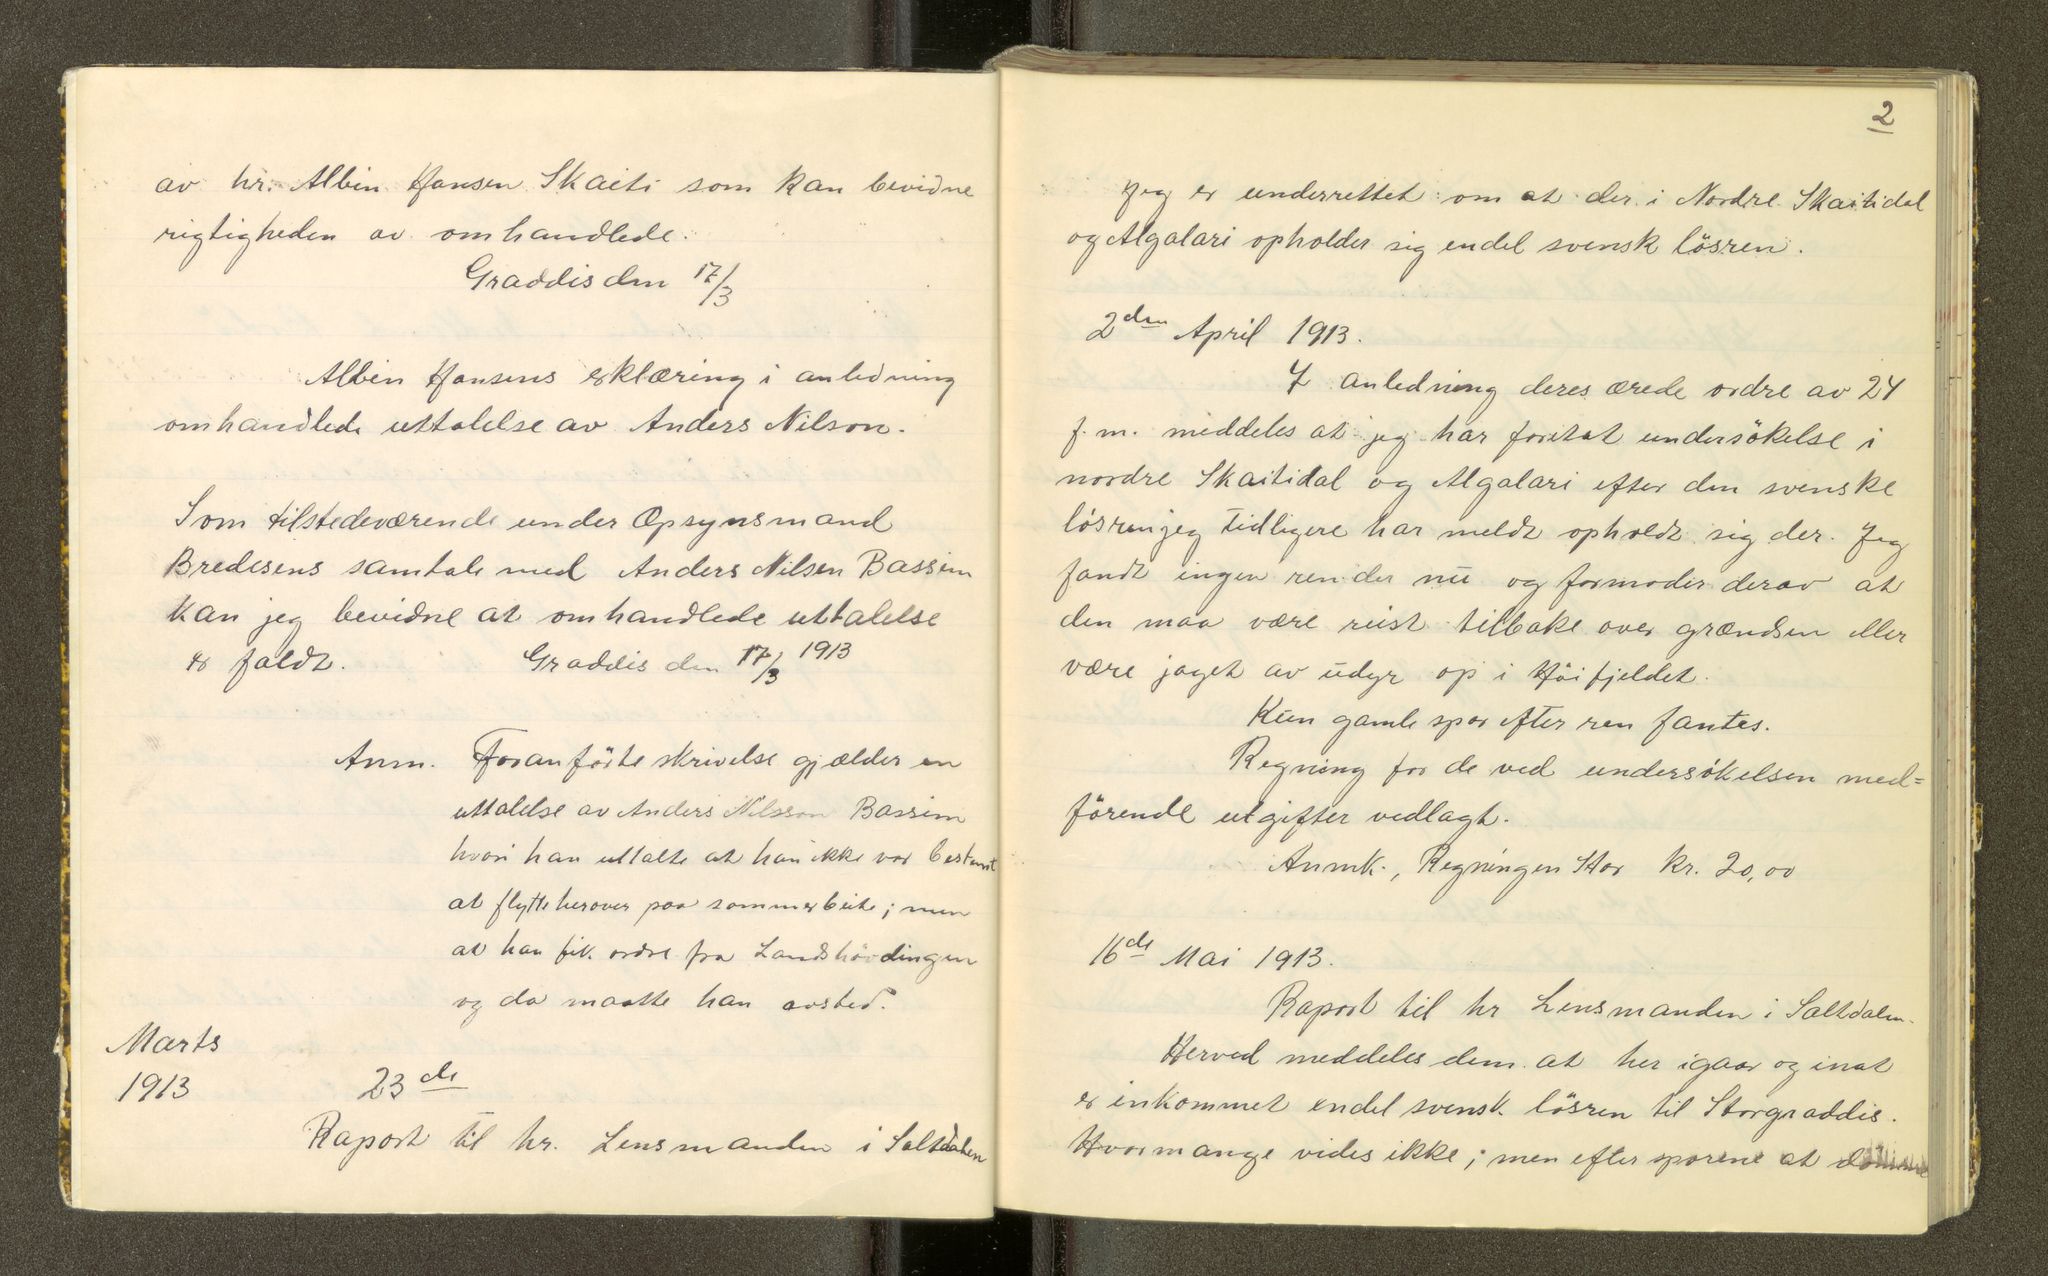 av hr. Albin Hansen Skaiti som kan bevidne
rigtigheden av omhandlede.
Graddis den 17/3
Albin Hansens erklæring i anledning
omhandlede uttalelse av Anders Nilson.
Som tilstedeværende under Opsynsmand
Bredesens samtale med Anders Nilsen Bassim
kan jeg bevidne at omhandlede uttalelse
er faldt. Graddis den 17/3 1913
Anm. Foranförte skrivelse gjælder en
uttalelse av Anders Nilsson Bassim
hvori han uttalte at han ikke var bestemt
at flytte herover paa sommerbeite; men
at han fik ordre fra Landshövdingen
og da maatte han avsted.
Marts
1913 23de
Raport til hr. Lensmanden i Saltdalen
2
Jeg er underrettet om at der i Nordre Skaitidal
og Algalari opholder sig endel svensk lösren.
2den April 1913.
I anledning deres ærede ordre av 24
f.m. meddeles at jeg har foretat undersökelse i
nordre Skaitidal og Algalari efter den svenske
lösren jeg tidligere har meldt opholdt sig der. Jeg
fandt ingen ren der nu og formoder derav at
den maa være reist tilbake over grændsen eller
være jaget av udyr op i Höifjeldet.
Kun gamle spor efter ren fantes.
Regning for de ved undersökelsen med=
förende utgifter vedlagt.
Anmk., Regningen Stor kr. 20,00
16de Mai 1913.
Raport til hr Lensmanden i Saltdalen.
Herved meddeles dem at her igaar og inat
er inkommet endel svensk lösren til Storgraddis.
Hvormange vides ikke; men efter sporene at dömme